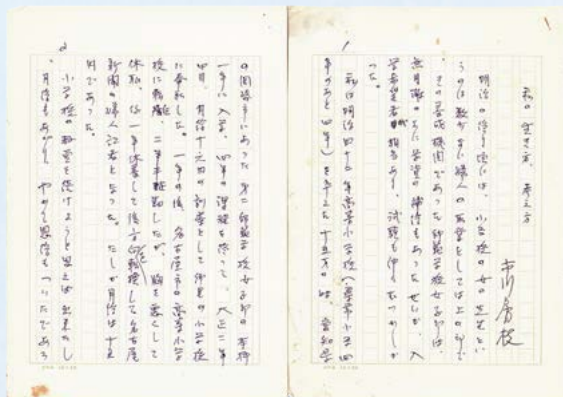 1
私の生き方、考え方
市川房枝
明治の終り頃には、小学校の女の先生とい
うのは数少ない婦人の職業としては上の部で
その養成機関であった師範学校女子部は、
無月謝の上に学資の補給もあったせいか、入
学希望者が相当あり、試験も仲々むつかしか
った。
私は明治四十一年高等小学校(尋常小学四
年のあと四年)を卒えた十五才の時、愛知県
2
の岡崎市にあった第二師範学校女子部の本科
一年に入学、四年の課程を終って、大正二年
四月、月給十六円の訓導として郷里の小学校
に奉職した。一年の後名古屋市の高等小学
校に転任、二年半勤めたが、胸を悪くして
休職、約一年休養して後 転換して名古屋
新聞の婦人記者となった。たしか月給は十五
円であった。
小学校の教員を続けようと思えば出来たし
、月給もあがり、やがて恩給もついたであろ